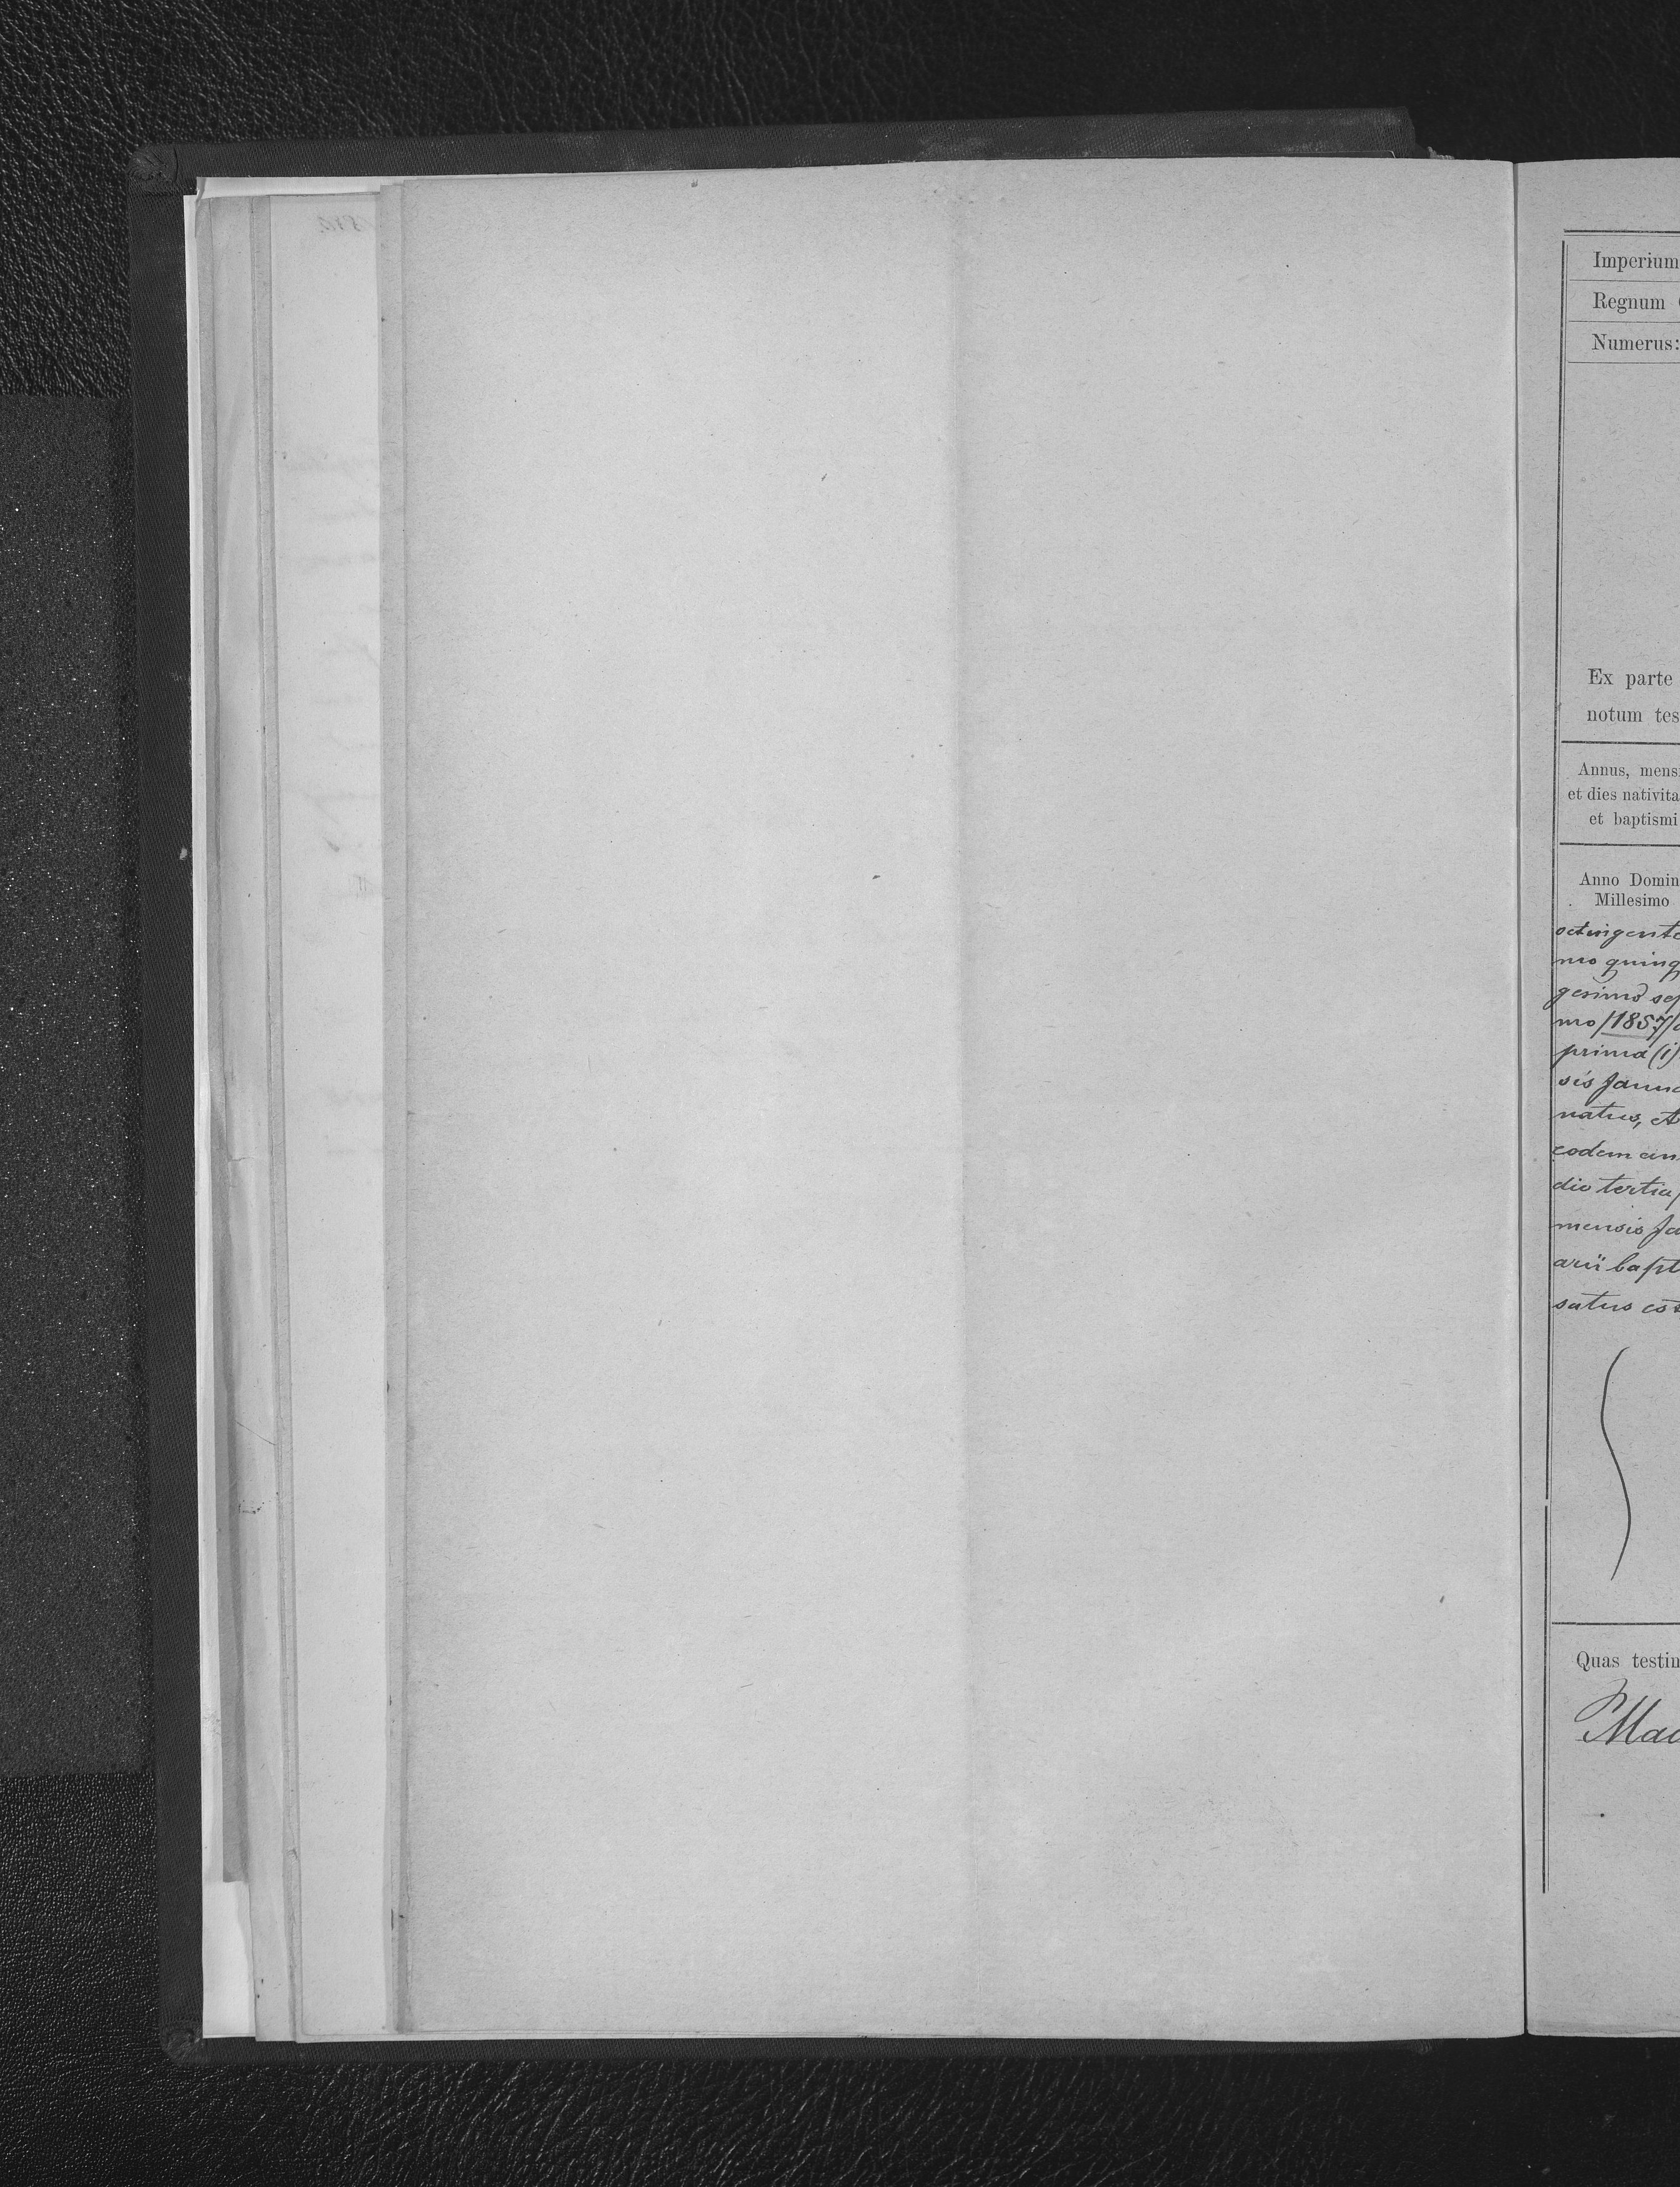 Imperium
Regnum
Numerus:
Ex parte
notum tes
Annus, mensi
et dies nativita
et baptismi
Anno Domin
Millesimo
octingente
mo quinq
gesimo sep
mo /1857/
prima (i)
sis Janua
natus, et
eodem an
die tertia
mensis Ja
arii bapt
satus est
Quas testim